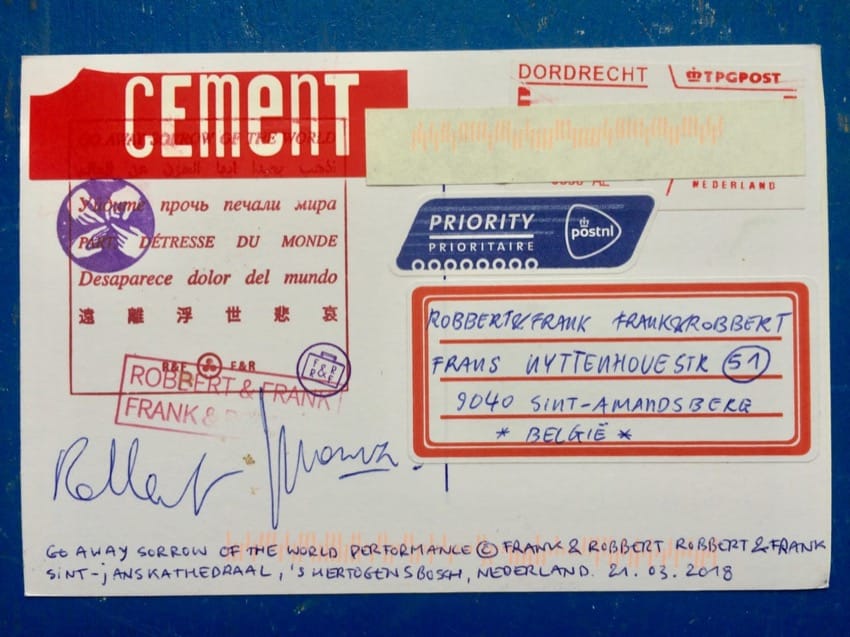 CEMENT
GO AWAY SORROW OF THE WORLD
Уйдите прочь печали мира
PARS DÉTRESSE DU MONDE
Desaparece dolor del mundo
遠離浮世悲哀
R&F F&R
F&R
R&F
ROBBERT & FRANK
FRANK &
DORDRECHT
TPGPOST
NEDERLAND
PRIORITY
PRIORITAIRE
postnl
ROBBERT & FRANK FRANK & ROBBERT
FRANS UYTTENHOVESTR 51
9040 SINT-AMANDSBERG
* BELGIË *
Robbert Frank
GO AWAY SORROW OF THE WORLD PERFORMANCE © FRANK & ROBBERT ROBBERT & FRANK
SINT-JANSKATHEDRAAL, 'S HERTOGENSBOSCH, NEDERLAND. 21.03.2018